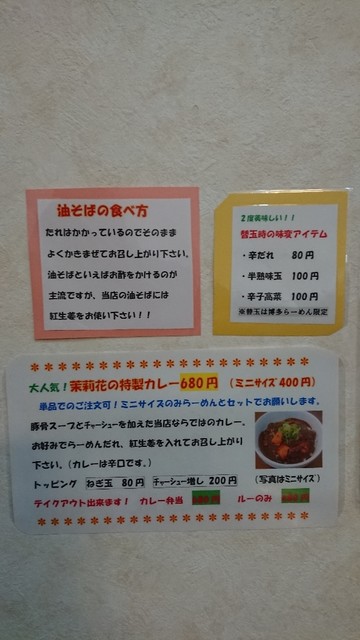 油そばの食べ方
たれはかかっているのでそのまま
よくかきまぜてお召し上がり下さい。
油そばといえばお酢をかけるのが
主流ですが、当店の油そばには
紅生姜をお使い下さい！！
2度美味しい！！
替玉時の味変アイテム
・辛だれ 80円
・半熟味玉 100円
・辛子高菜 100円
※替玉は博多らーめん限定
大人気！茉莉花の特製カレー680円 （ミニサイズ400円）
単品でのご注文可！ミニサイズのみらーめんとセットでお願いします。
豚骨スープとチャーシューを加えた当店ならではのカレー。
お好みでらーめんだれ、紅生姜を入れてお召し上がり
下さい。（カレーは辛口です。）
（写真はミニサイズ）
トッピング ねぎ玉 80円 チャーシュー増し 200円
テイクアウト出来ます！ カレー弁当 ルーのみ